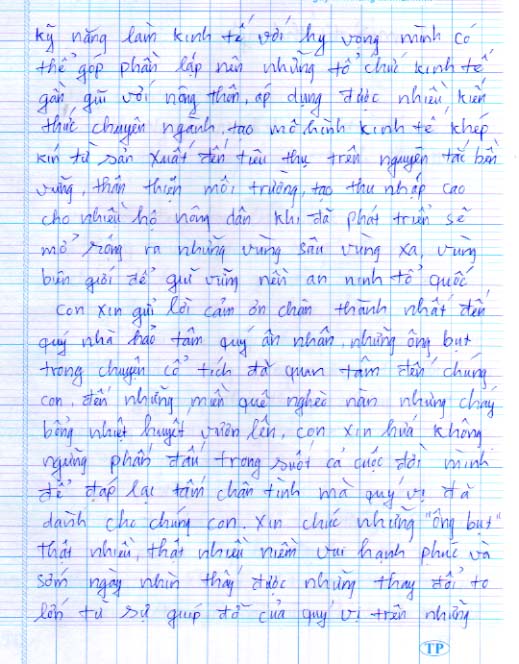 kỹ năng làm kinh tế với hy vọng mình có
thể góp phần lập nên những tổ chức kinh tế
gần gũi với nông thôn, áp dụng được nhiều kiến
thức chuyên ngành, tạo mô hình kinh tế khép
kín từ sản xuất đến tiêu thụ trên nguyên tắc bền
vững, thân thiện môi trường, tạo thu nhập cao
cho nhiều hộ nông dân khi đã phát triển sẽ
mở rộng ra những vùng sâu vùng xa, vùng
biên giới để giữ vững nền an ninh tổ quốc
Con xin gửi lời cảm ơn chân thành nhất đến
quý nhà hảo tâm quý ân nhân, những ông bụt
trong chuyện cổ tích đã quan tâm đến chúng
con, đến những miền quê nghèo nàn nhưng cháy
bỏng nhiệt huyết vươn lên, con xin hứa không
ngừng phấn đấu trong suốt cả cuộc đời mình
để đáp lại tấm chân tình mà quý vị đã
dành cho chúng con. Xin chúc những "ông bụt"
thật nhiều, thật nhiều niềm vui hạnh phúc và
sớm ngày nhìn thấy được những thay đổi to
lớn từ sự giúp đỡ của quý vị trên những
TP